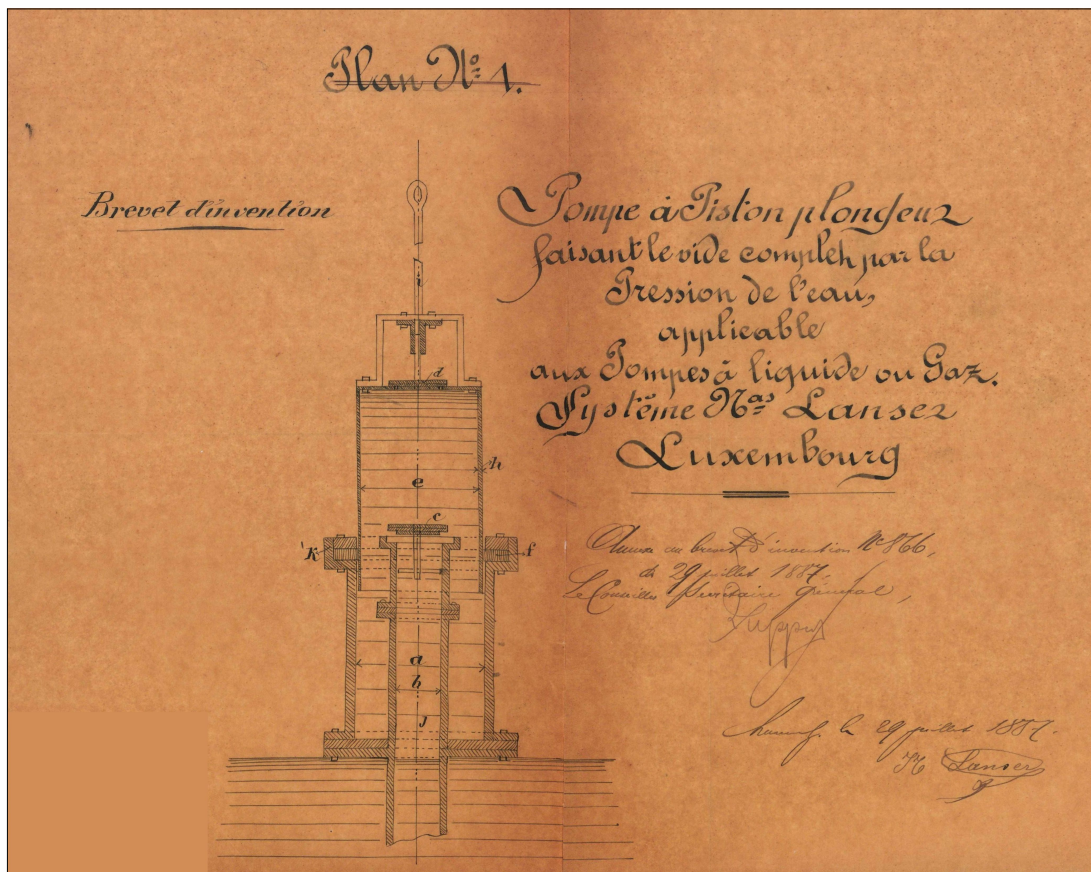 Plan Nº 1.
Brevet d'invention
Pompe à Piston plongeur
faisant le vide complet, par la
Pression de l'eau,
applicable
aux Pompes à liquide ou Gaz.
Système Nas Lanser
Luxembourg
i
d
h
e
c
K
f
a
b
j
Annexe au brevet d'invention Nº 866,
du 29 juillet 1887.
Le Conseiller Secrétaire général,
le 29 juillet 1887.
Lanser